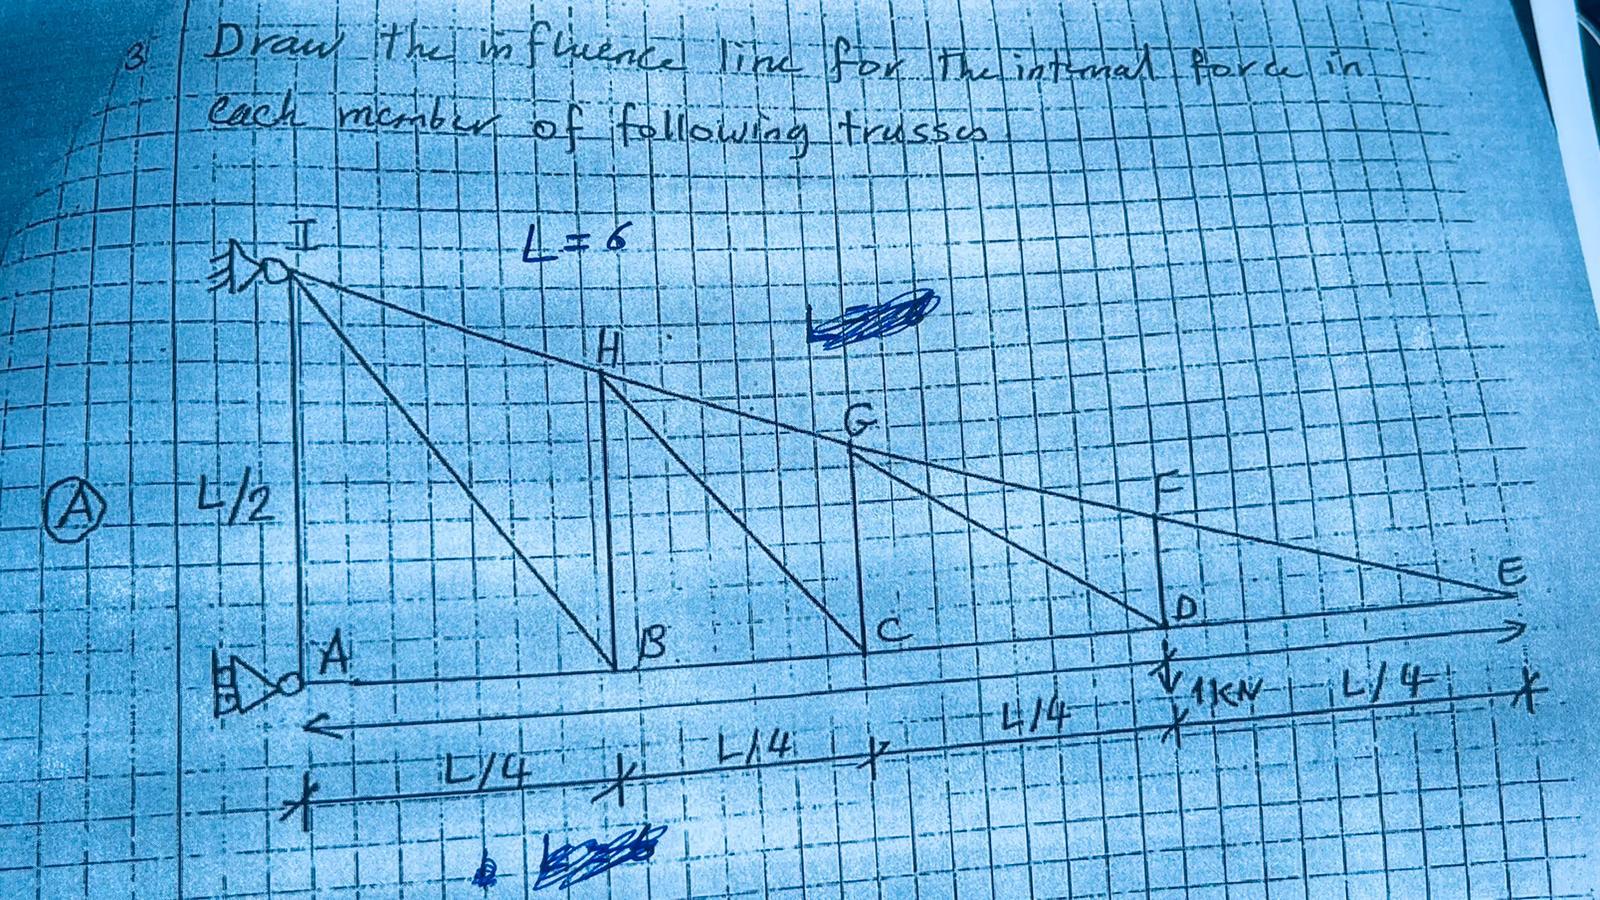 3 Draw the influence line for the internal force in
each member of following trusses
I
L = 6
H
G
A
L/2
F
E
A
B
C
D
1KN
L/4
L/4
L/4
L/4